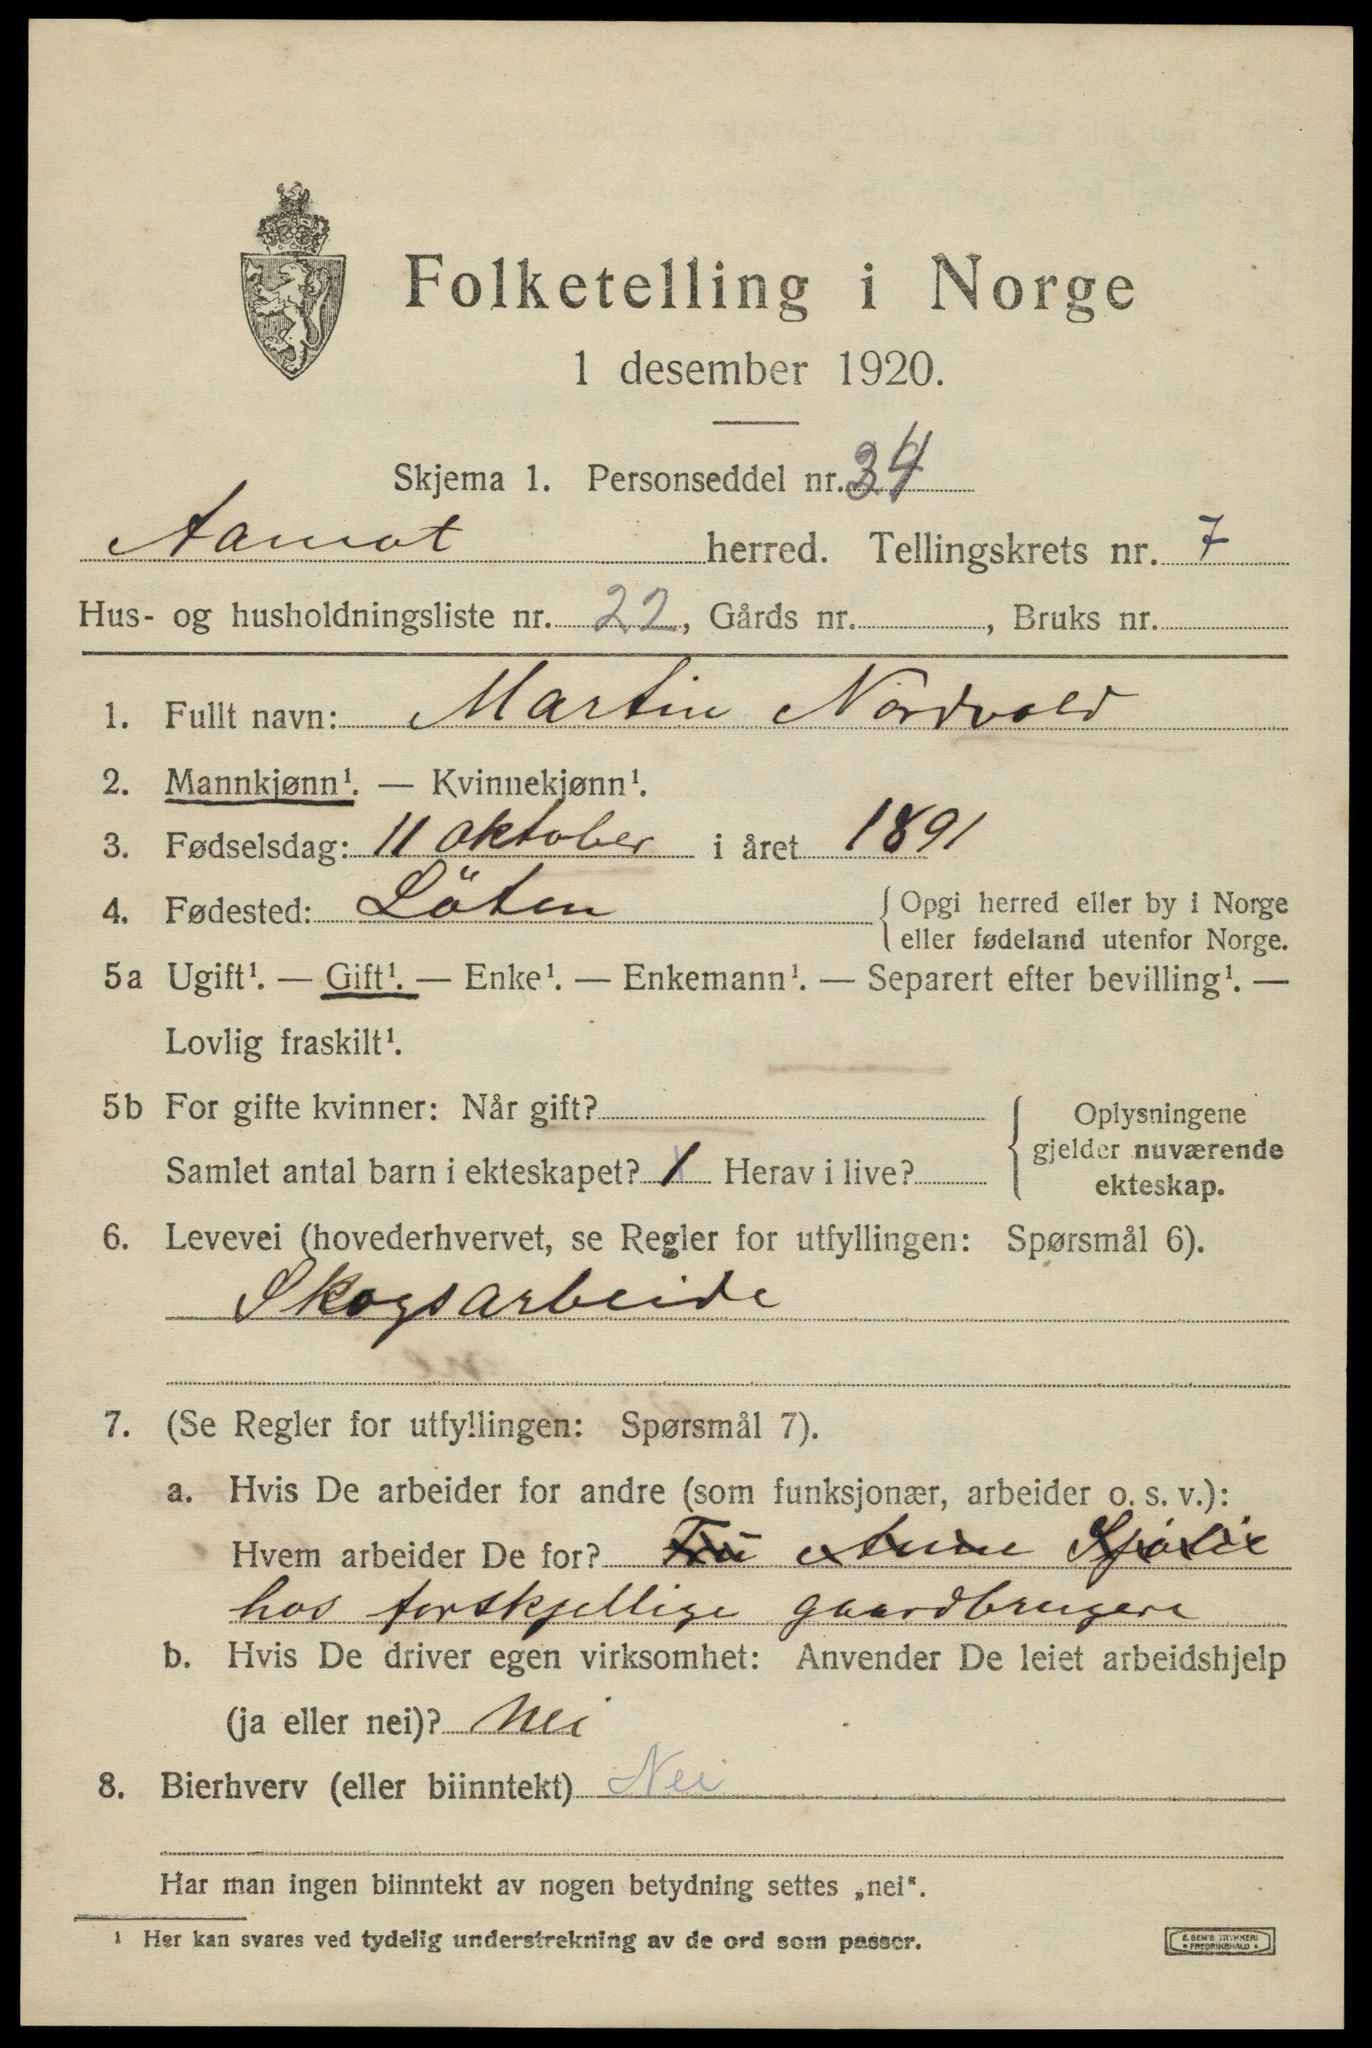 Folketelling i Norge
1 desember 1920.
Skjema 1. Personseddel nr. 34
Aamot herred. Tellingskrets nr. 7
Hus- og husholdningsliste nr. 22, Gårds nr. , Bruks nr.
1. Fullt navn: Martin Nordvold
2. Mannkjønn¹. — Kvinnekjønn¹.
3. Fødselsdag: 11 oktober i året 1891
4. Fødested: Löten
{Opgi herred eller by i Norge
eller fødeland utenfor Norge.
5a Ugift¹. — Gift¹. — Enke¹. — Enkemann¹. — Separert efter bevilling¹. —
Lovlig fraskilt¹.
5b For gifte kvinner: Når gift?
Samlet antal barn i ekteskapet? 1 Herav i live?
{Oplysningene
gjelder nuværende
ekteskap.
6. Levevei (hovederhvervet, se Regler for utfyllingen: Spørsmål 6).
Skogsarbeide
7. (Se Regler for utfyllingen: Spørsmål 7).
a. Hvis De arbeider for andre (som funksjonær, arbeider o. s. v.):
Hvem arbeider De for? Fru Anne Sjölie
hos forskjellige gaardbrugere
b. Hvis De driver egen virksomhet: Anvender De leiet arbeidshjelp
(ja eller nei)? Nei
8. Bierhverv (eller biinntekt) Nei
Har man ingen biinntekt av nogen betydning settes „nei“.
¹ Her kan svares ved tydelig understrekning av de ord som passer.
E. SEM'S TRYKKERI
• FREDRIKSHALD •